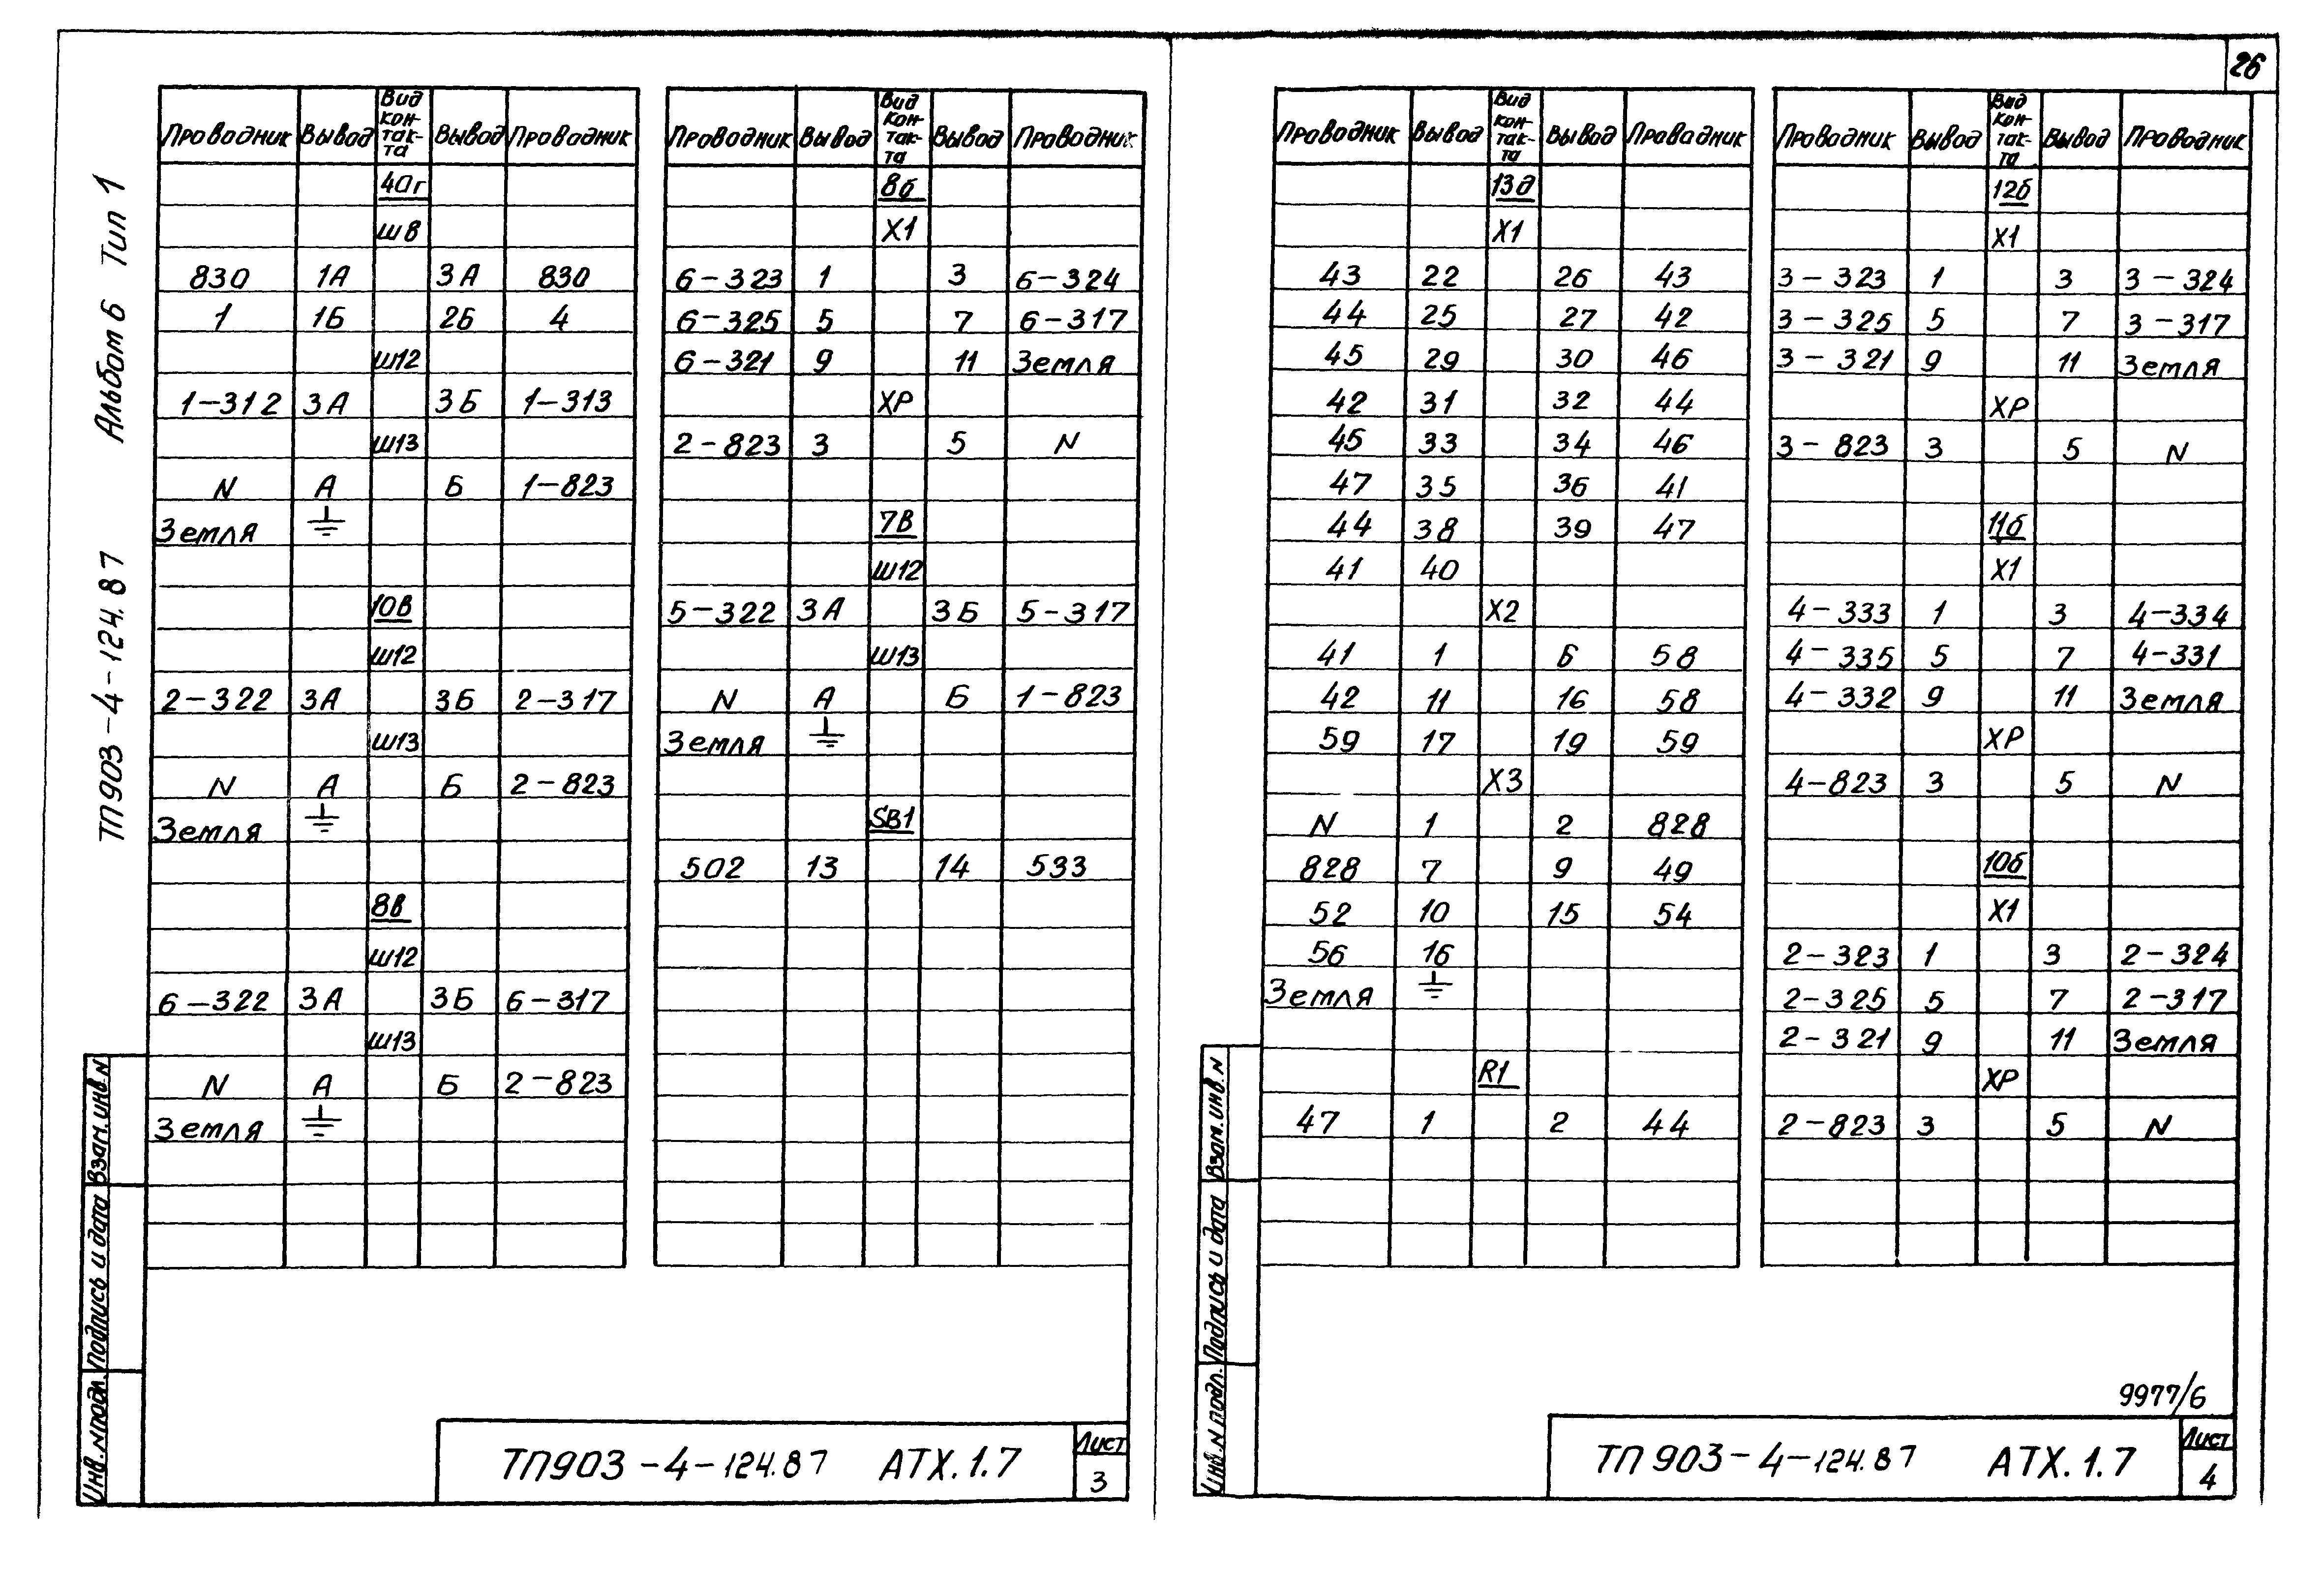 26
ТП903-4-124.87 Альбом 6 Тип 1
Проводник Вывод Вид кон-так-та Вывод Проводник
40г
Ш8
830 1А 3А 830
1 1Б 2Б 4
Ш12
1-312 3А 3Б 1-313
Ш13
N А Б 1-823
Земля ⏚
10В
Ш12
2-322 3А 3Б 2-317
Ш13
N А Б 2-823
Земля ⏚
8В
Ш12
6-322 3А 3Б 6-317
Ш13
N А Б 2-823
Земля ⏚
Проводник Вывод Вид кон-так-та Вывод Проводник
8б
Х1
6-323 1 3 6-324
6-325 5 7 6-317
6-321 9 11 Земля
ХР
2-823 3 5 N
7В
Ш12
5-322 3А 3Б 5-317
Ш13
N А Б 1-823
Земля ⏚
SB1
502 13 14 533
Инв.N подл. Подпись и дата Взам.инв.N
ТП903-4-124.87 АТХ.1.7
Лист
3
Проводник Вывод Вид кон-так-та Вывод Проводник
13д
Х1
43 22 26 43
44 25 27 42
45 29 30 46
42 31 32 44
45 33 34 46
47 35 36 41
44 38 39 47
41 40
Х2
41 1 6 58
42 11 16 58
59 17 19 59
Х3
N 1 2 828
828 7 9 49
52 10 15 54
56 16
Земля ⏚
R1
47 1 2 44
Проводник Вывод Вид кон-так-та Вывод Проводник
12б
Х1
3-323 1 3 3-324
3-325 5 7 3-317
3-321 9 11 Земля
ХР
3-823 3 5 N
11б
Х1
4-333 1 3 4-334
4-335 5 7 4-331
4-332 9 11 Земля
ХР
4-823 3 5 N
10б
Х1
2-323 1 3 2-324
2-325 5 7 2-317
2-321 9 11 Земля
ХР
2-823 3 5 N
Инв.N подл. Подпись и дата Взам.инв.N
9977/6
ТП903-4-124.87 АТХ.1.7
Лист
4